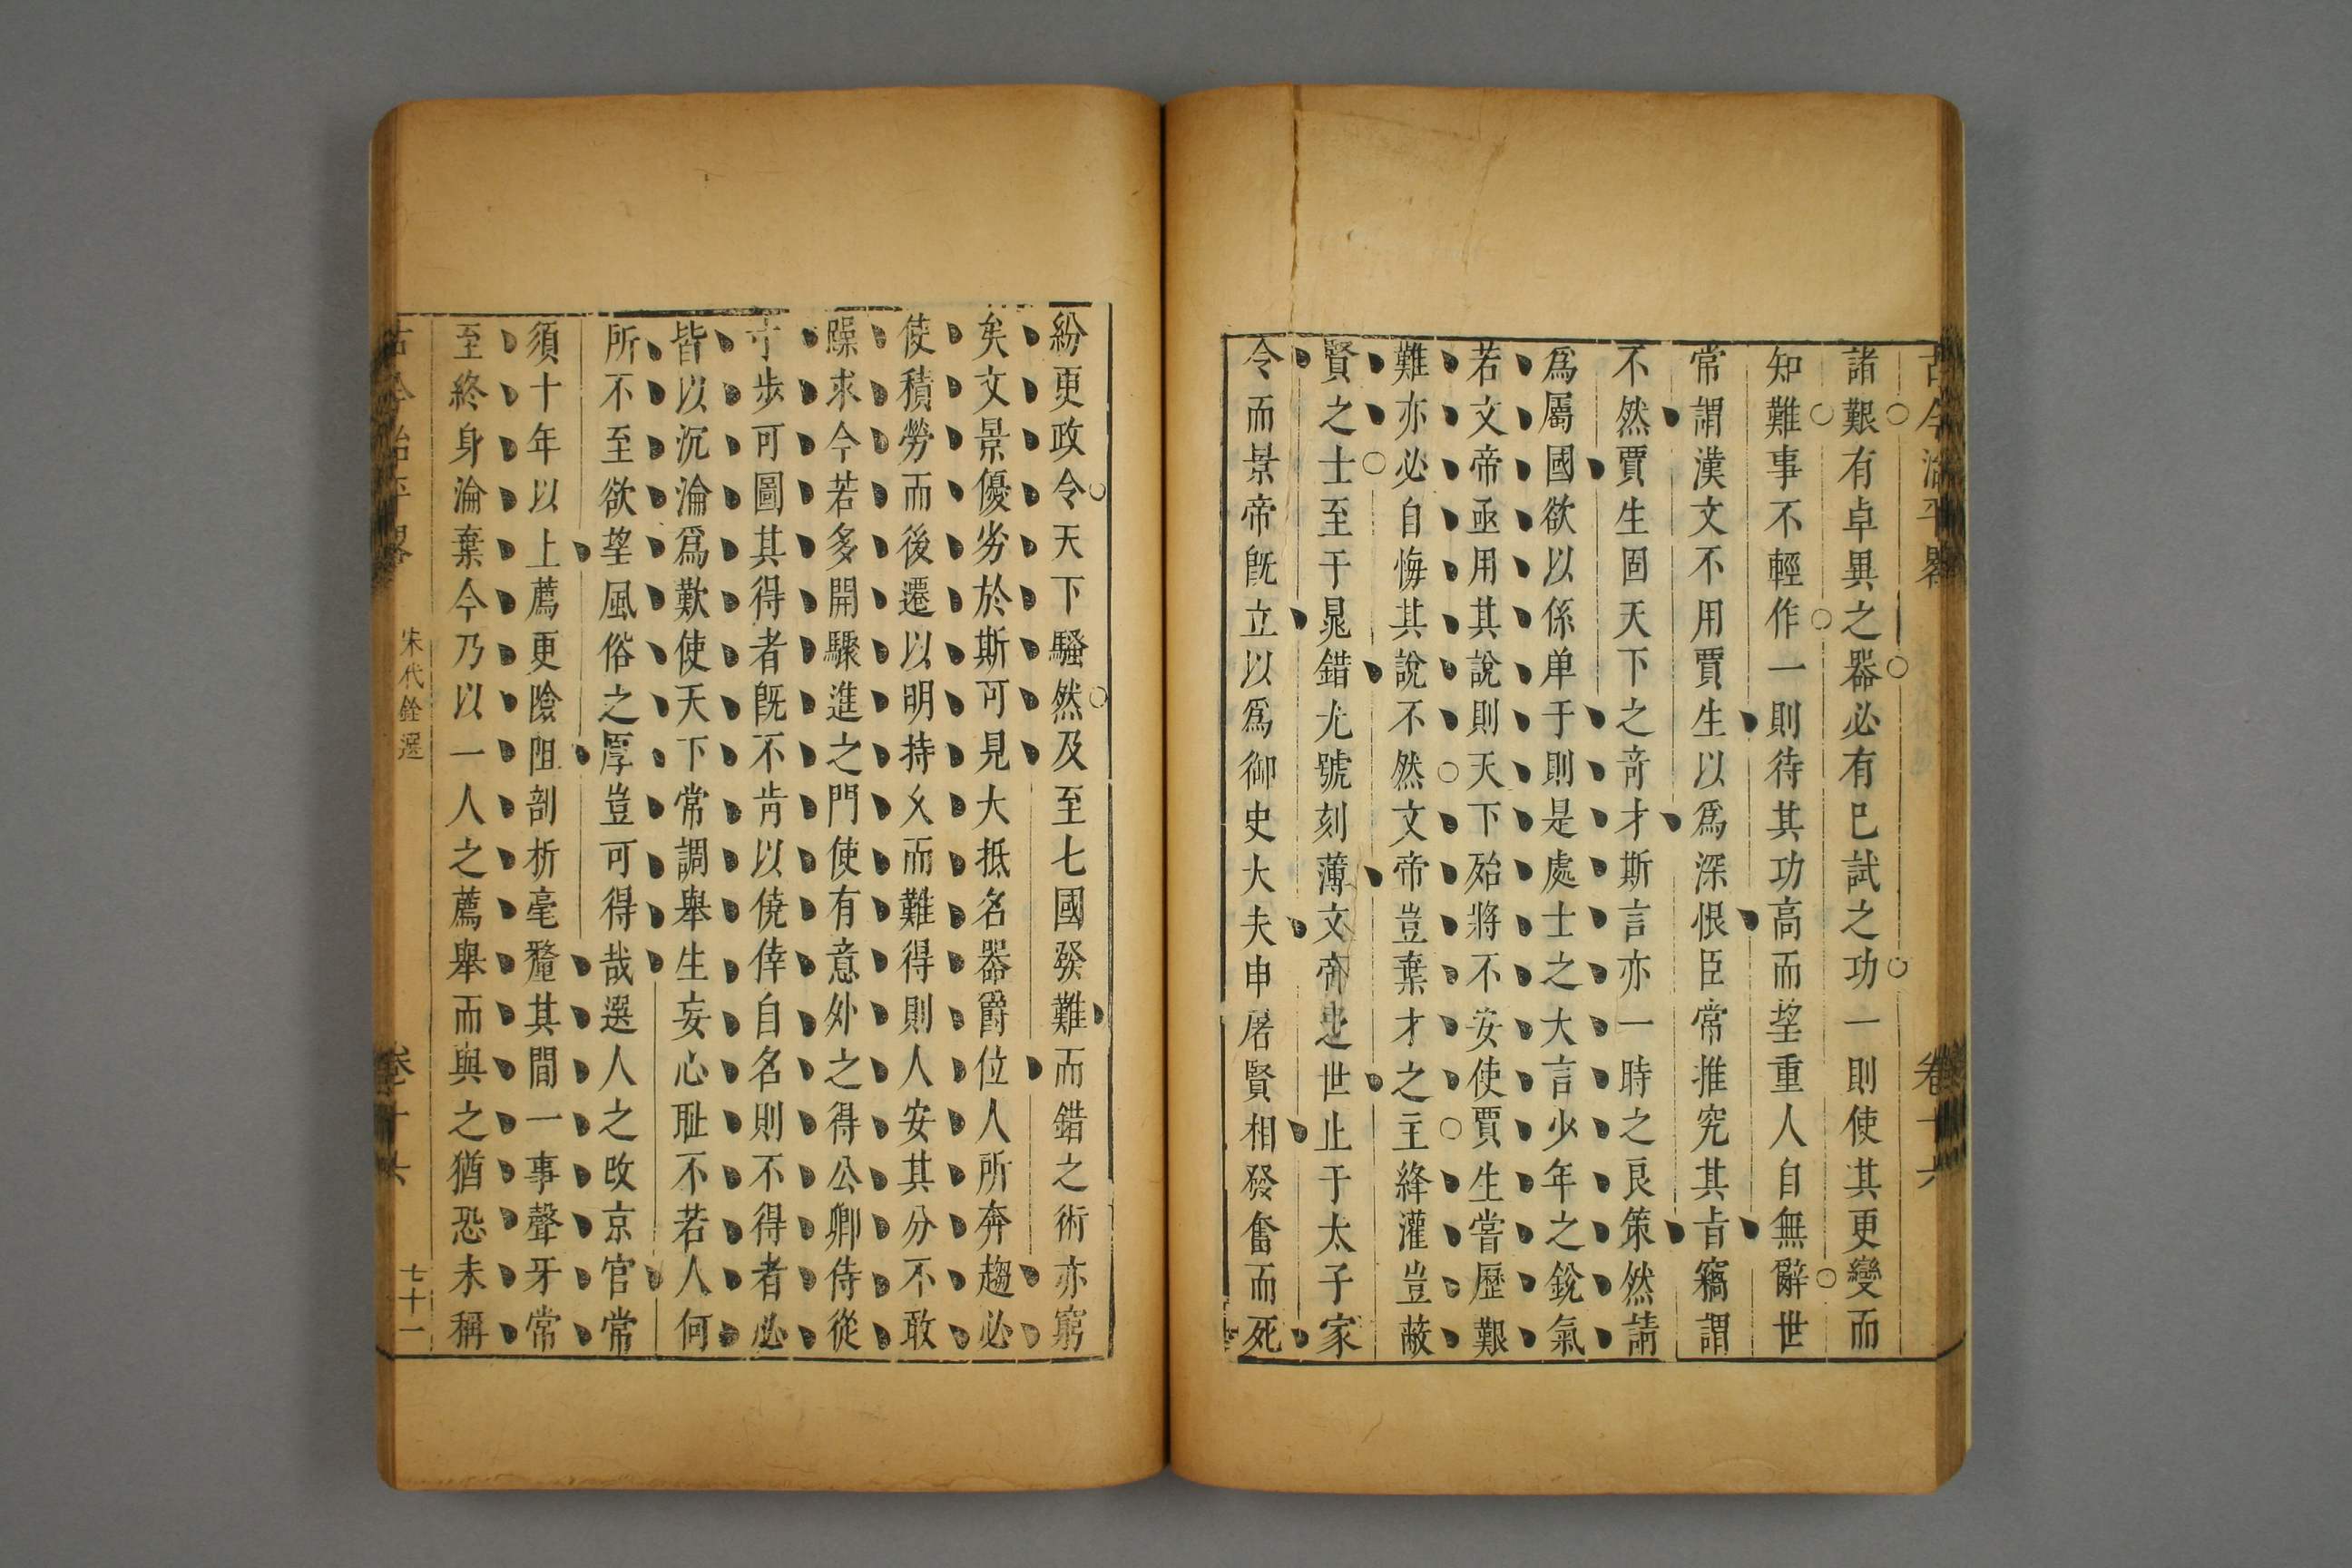 古今治平畧 卷十六
諸艱有卓異之器必有已試之功一則使其更變而
知難事不輕作一則待其功高而望重人自無辭世
常謂漢文不用賈生以爲深恨臣常推究其旨竊謂
不然賈生固天下之竒才斯言亦一時之良策然請
爲屬國欲以係单于則是處士之大言少年之銳氣
若文帝亟用其說則天下殆將不安使賈生嘗歷艱
難亦必自悔其說不然文帝豈棄才之主絳灌豈蔽
賢之士至于晁錯尤號刻薄文帝之世止于太子家
令而景帝旣立以爲御史大夫申屠賢相發奮而死
紛更政令天下騷然及至七國發難而錯之術亦窮
矣文景優劣於斯可見大抵名器爵位人所奔趨必
使積勞而後遷以明持久而難得則人安其分不敢
躁求今若多開驟進之門使有意外之得公卿侍從
寸步可圖其得者旣不肯以僥倖自名則不得者必
皆以沉淪爲歎使天下常調舉生妄心耻不若人何
所不至欲望風俗之厚豈可得哉選人之改京官常
須十年以上薦更險阻剖析毫釐其間一事聱牙常
至終身淪棄今乃以一人之薦舉而與之猶恐未稱
古今治平畧 宋代銓選 卷十六 七十一